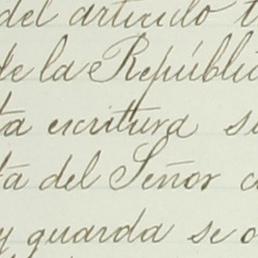 del articulo t
de la Repúblic
ta escritura s
ta del Señor c
y guarda se o